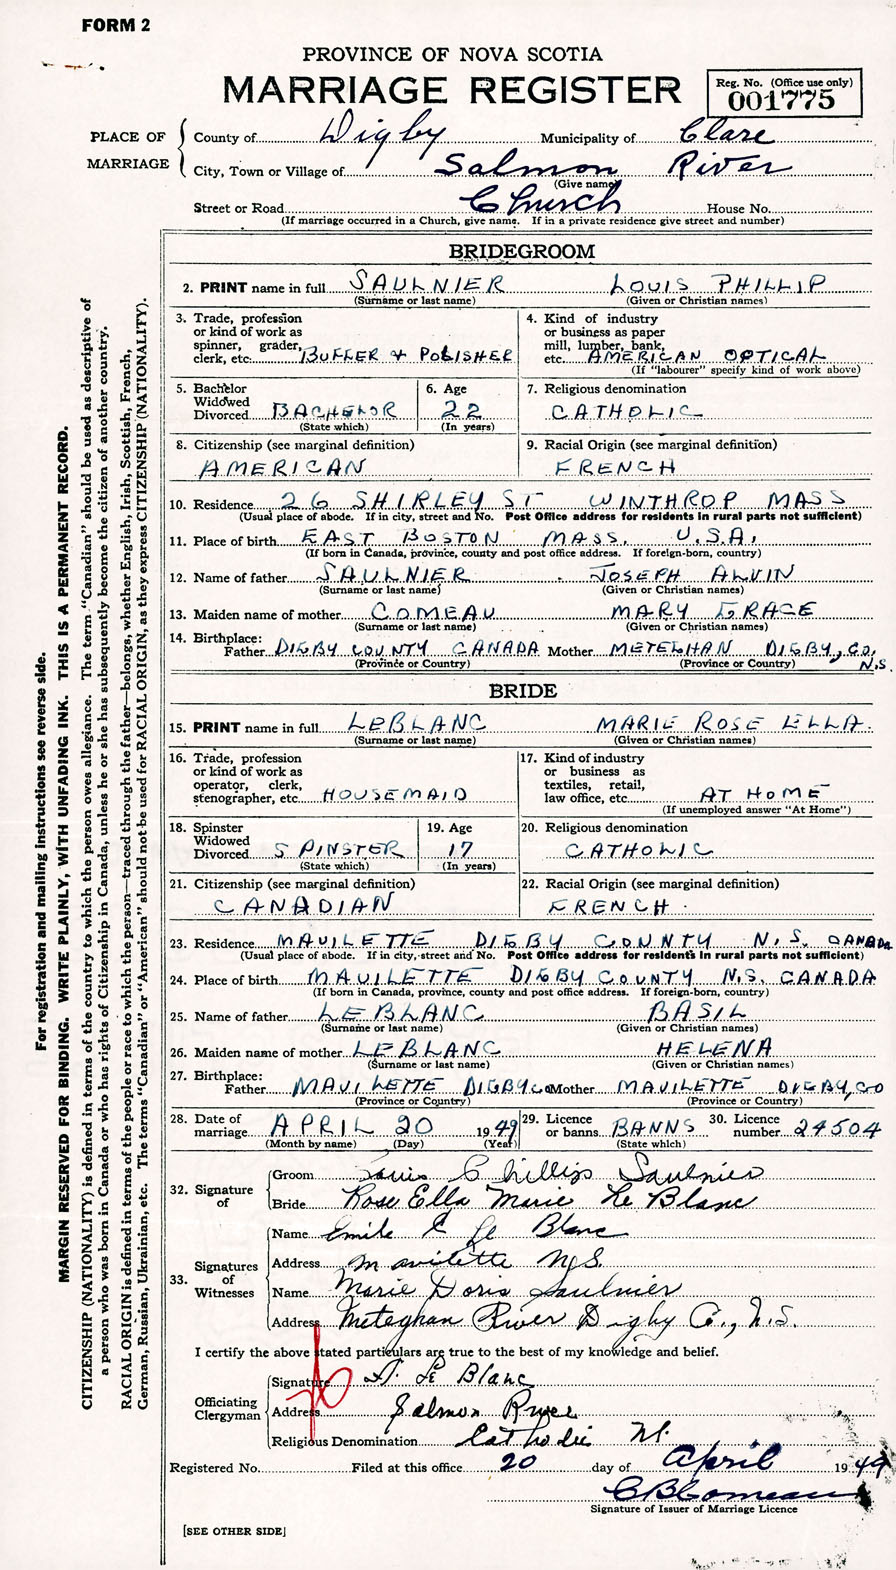 FORM 2
PROVINCE OF NOVA SCOTIA
MARRIAGE REGISTER
Reg. No. (Office use only)
001775
PLACE OF MARRIAGE
County of Digby Municipality of Clare
City, Town or Village of Salmon River
(Give name)
Street or Road Church House No.
(If marriage occurred in a Church, give name. If in a private residence give street and number)
BRIDEGROOM
2. PRINT name in full SAULNIER LOUIS PHILLIP
(Surname or last name) (Given or Christian names)
3. Trade, profession or kind of work as spinner, grader, clerk, etc. BUFFER & POLISHER
4. Kind of industry or business as paper mill, lumber, bank, etc. AMERICAN OPTICAL
(If "labourer" specify kind of work above)
5. Bachelor Widowed Divorced BACHELOR
(State which)
6. Age 22
(In years)
7. Religious denomination
CATHOLIC
8. Citizenship (see marginal definition)
AMERICAN
9. Racial Origin (see marginal definition)
FRENCH
10. Residence 26 SHIRLEY ST WINTHROP MASS
(Usual place of abode. If in city, street and No. Post Office address for residents in rural parts not sufficient)
11. Place of birth EAST BOSTON MASS. U.S.A.
(If born in Canada, province, county and post office address. If foreign-born, country)
12. Name of father SAULNIER JOSEPH ALVIN
(Surname or last name) (Given or Christian names)
13. Maiden name of mother COMEAU MARY GRACE
(Surname or last name) (Given or Christian names)
14. Birthplace:
Father DIGBY COUNTY CANADA Mother METEGHAN DIGBY, CO. N.S.
(Province or Country) (Province or Country)
BRIDE
15. PRINT name in full LEBLANC MARIE ROSE ELLA.
(Surname or last name) (Given or Christian names)
16. Trade, profession or kind of work as operator, clerk, stenographer, etc. HOUSEMAID
17. Kind of industry or business as textiles, retail, law office, etc. AT HOME
(If unemployed answer "At Home")
18. Spinster Widowed Divorced SPINSTER
(State which)
19. Age 17
(In years)
20. Religious denomination
CATHOLIC
21. Citizenship (see marginal definition)
CANADIAN
22. Racial Origin (see marginal definition)
FRENCH.
23. Residence MAVILETTE DIGBY COUNTY N.S. CANADA
(Usual place of abode. If in city, street and No. Post Office address for residents in rural parts not sufficient)
24. Place of birth MAVILETTE DIGBY COUNTY N.S. CANADA
(If born in Canada, province, county and post office address. If foreign-born, country)
25. Name of father LEBLANC BASIL
(Surname or last name) (Given or Christian names)
26. Maiden name of mother LEBLANC HELENA
(Surname or last name) (Given or Christian names)
27. Birthplace:
Father MAVILETTE DIGBY CO Mother MAVILETTE DIGBY, CO
(Province or Country) (Province or Country)
28. Date of marriage APRIL 20 1949
(Month by name) (Day) (Year)
29. Licence or banns BANNS
(State which)
30. Licence number 24504
32. Signature of
Groom Louis Phillip Saulnier
Bride Rose Ella Marie Le Blanc
33. Signatures of Witnesses
Name Emile E Le Blanc
Address Mavilette N.S.
Name Marie Doris Saulnier
Address Meteghan River Digby Co., N.S.
I certify the above stated particulars are true to the best of my knowledge and belief.
Officiating Clergyman
Signature A. Le Blanc
Address Salmon River
Religious Denomination Catholic
Registered No. Filed at this office 20 day of April 1949
C B Comeau
Signature of Issuer of Marriage Licence
[SEE OTHER SIDE]
For registration and mailing instructions see reverse side.
MARGIN RESERVED FOR BINDING. WRITE PLAINLY, WITH UNFADING INK. THIS IS A PERMANENT RECORD.
CITIZENSHIP (NATIONALITY) is defined in terms of the country to which the person owes allegiance. The term "Canadian" should be used as descriptive of
a person who was born in Canada or who has rights of Citizenship in Canada, unless he or she has subsequently become the citizen of another country.
RACIAL ORIGIN is defined in terms of the people or race to which the person—traced through the father—belongs, whether English, Irish, Scottish, French,
German, Russian, Ukrainian, etc. The terms "Canadian" or "American" should not be used for RACIAL ORIGIN, as they express CITIZENSHIP (NATIONALITY).